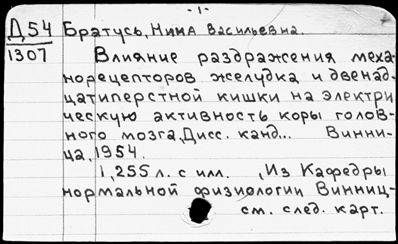 - 1 -
Д54 Братусь, Нина Васильевна.
1307 Влияние раздражения меха-
норецепторов желудка и двенад-
цатиперстной кишки на электри
ческую активность коры голов-
ного мозга, Дисс. канд... Винни-
ца, 1954.
1, 255 л. с илл. , Из Кафедры
нормальной физиологии Винниц-
см. след. карт.